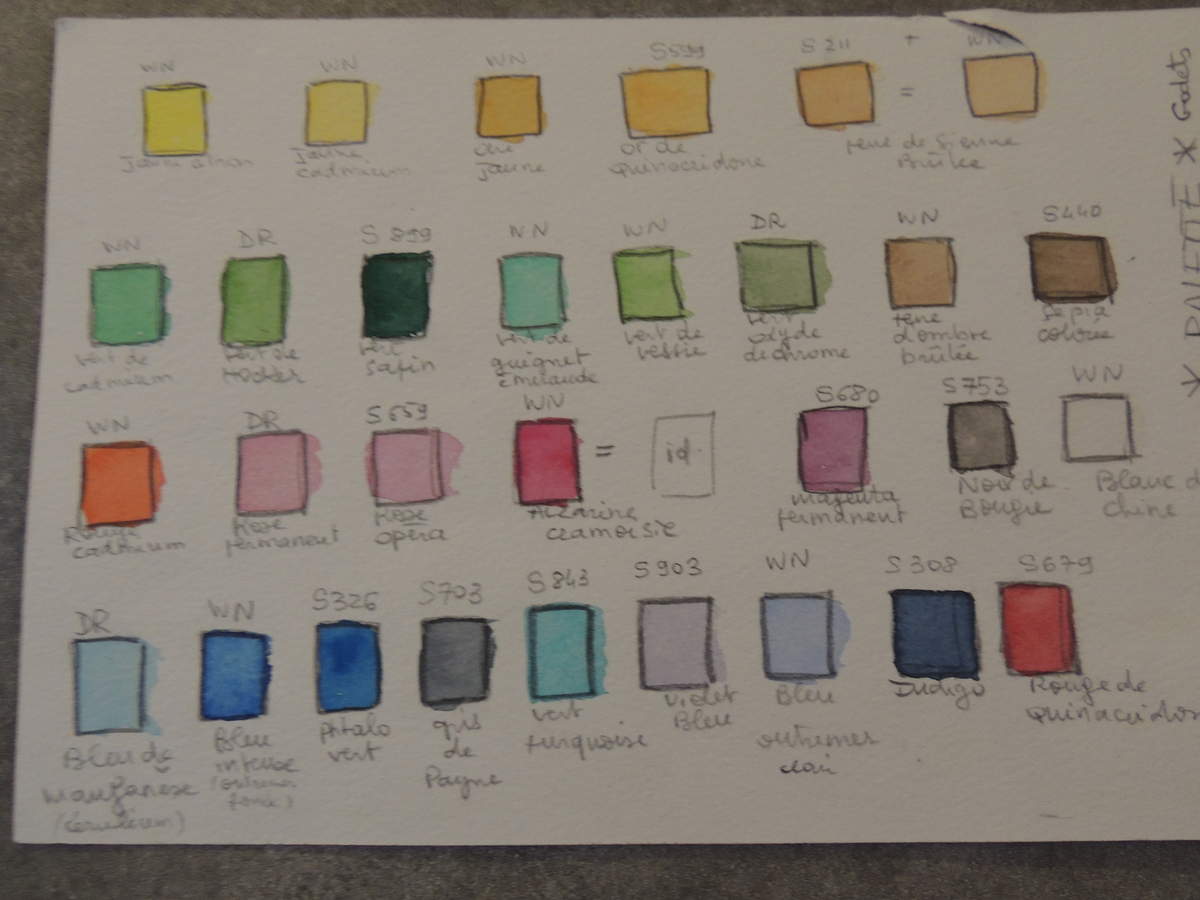 WN WN WN S599 S211 + WN
=
Jaune citron Jaune cadmium ocre jaune or de quinacridone terre de Sienne Brûlée
WN DR S 899 WN WN DR WN S440
vert de cadmium vert de hooker vert sapin vert de guignet émeraude vert de vessie vert oxyde de chrome terre d'ombre brûlée Sépia colorée
WN DR S659 WN S680 S753 WN
= id.
Rouge cadmium Rose permanent Rose opéra Alizarine cramoisie magenta permanent Noir de Bougie Blanc d chine
DR WN S326 S703 S843 S903 WN S308 S679
Bleu de manganèse (céruléum) Bleu intense (outremer foncé) phtalo vert gris de Payne vert turquoise violet Bleu Bleu outremer clair Indigo Rouge de Quinacridon
* PALETTE * Godets